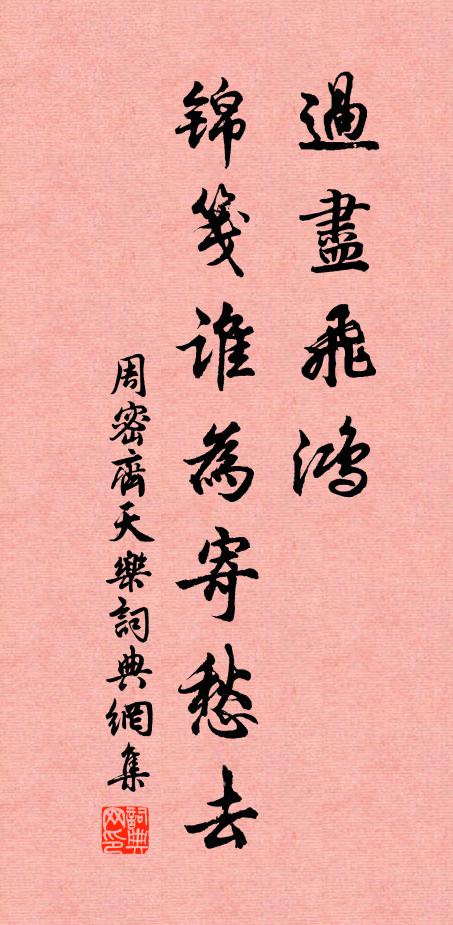 過盡飛鴻
錦箋誰為寄愁去
周密齊天樂詞典網集
詞典网印